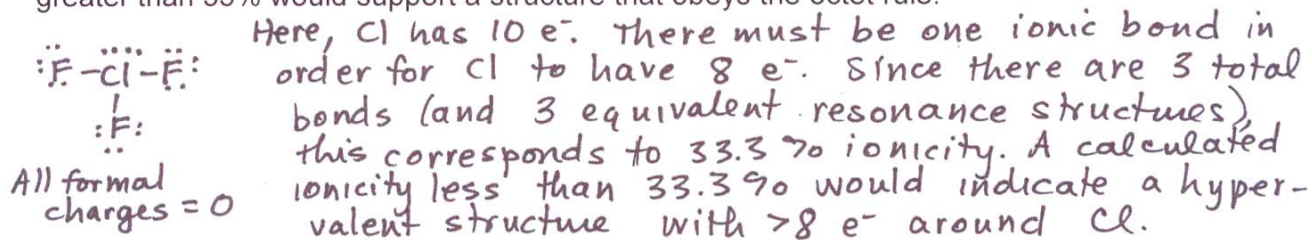 greater than 33% would support a structure that obeys the octet rule.
Here, Cl has 10 e⁻. There must be one ionic bond in
:F-Cl-F: order for Cl to have 8 e⁻. Since there are 3 total
:F: bonds (and 3 equivalent resonance structures),
this corresponds to 33.3% ionicity. A calculated
All formal ionicity less than 33.3% would indicate a hyper-
charges = 0 valent structure with >8 e⁻ around Cl.